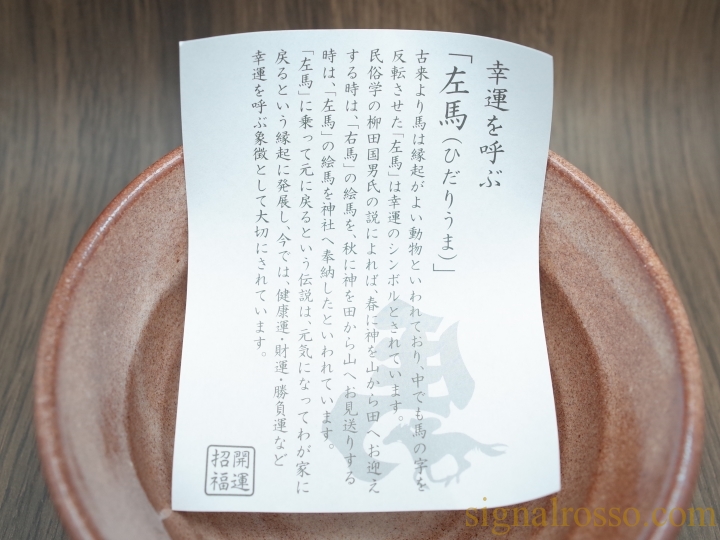 幸運を呼ぶ
「左馬(ひだりうま)」
古来より馬は縁起がよい動物といわれており、中でも馬の字を
反転させた「左馬」は幸運のシンボルとされています。
民俗学の柳田国男氏の説によれば、春に神を山から田へお迎え
する時は、「右馬」の絵馬を、秋に神を田から山へお見送りする
時は、「左馬」の絵馬を神社へ奉納したといわれています。
「左馬」に乗って元に戻るという伝説は、元気になってわが家に
戻るという縁起に発展し、今では、健康運・財運・勝負運など
幸運を呼ぶ象徴として大切にされています。
開運
招福
signalrosso.com